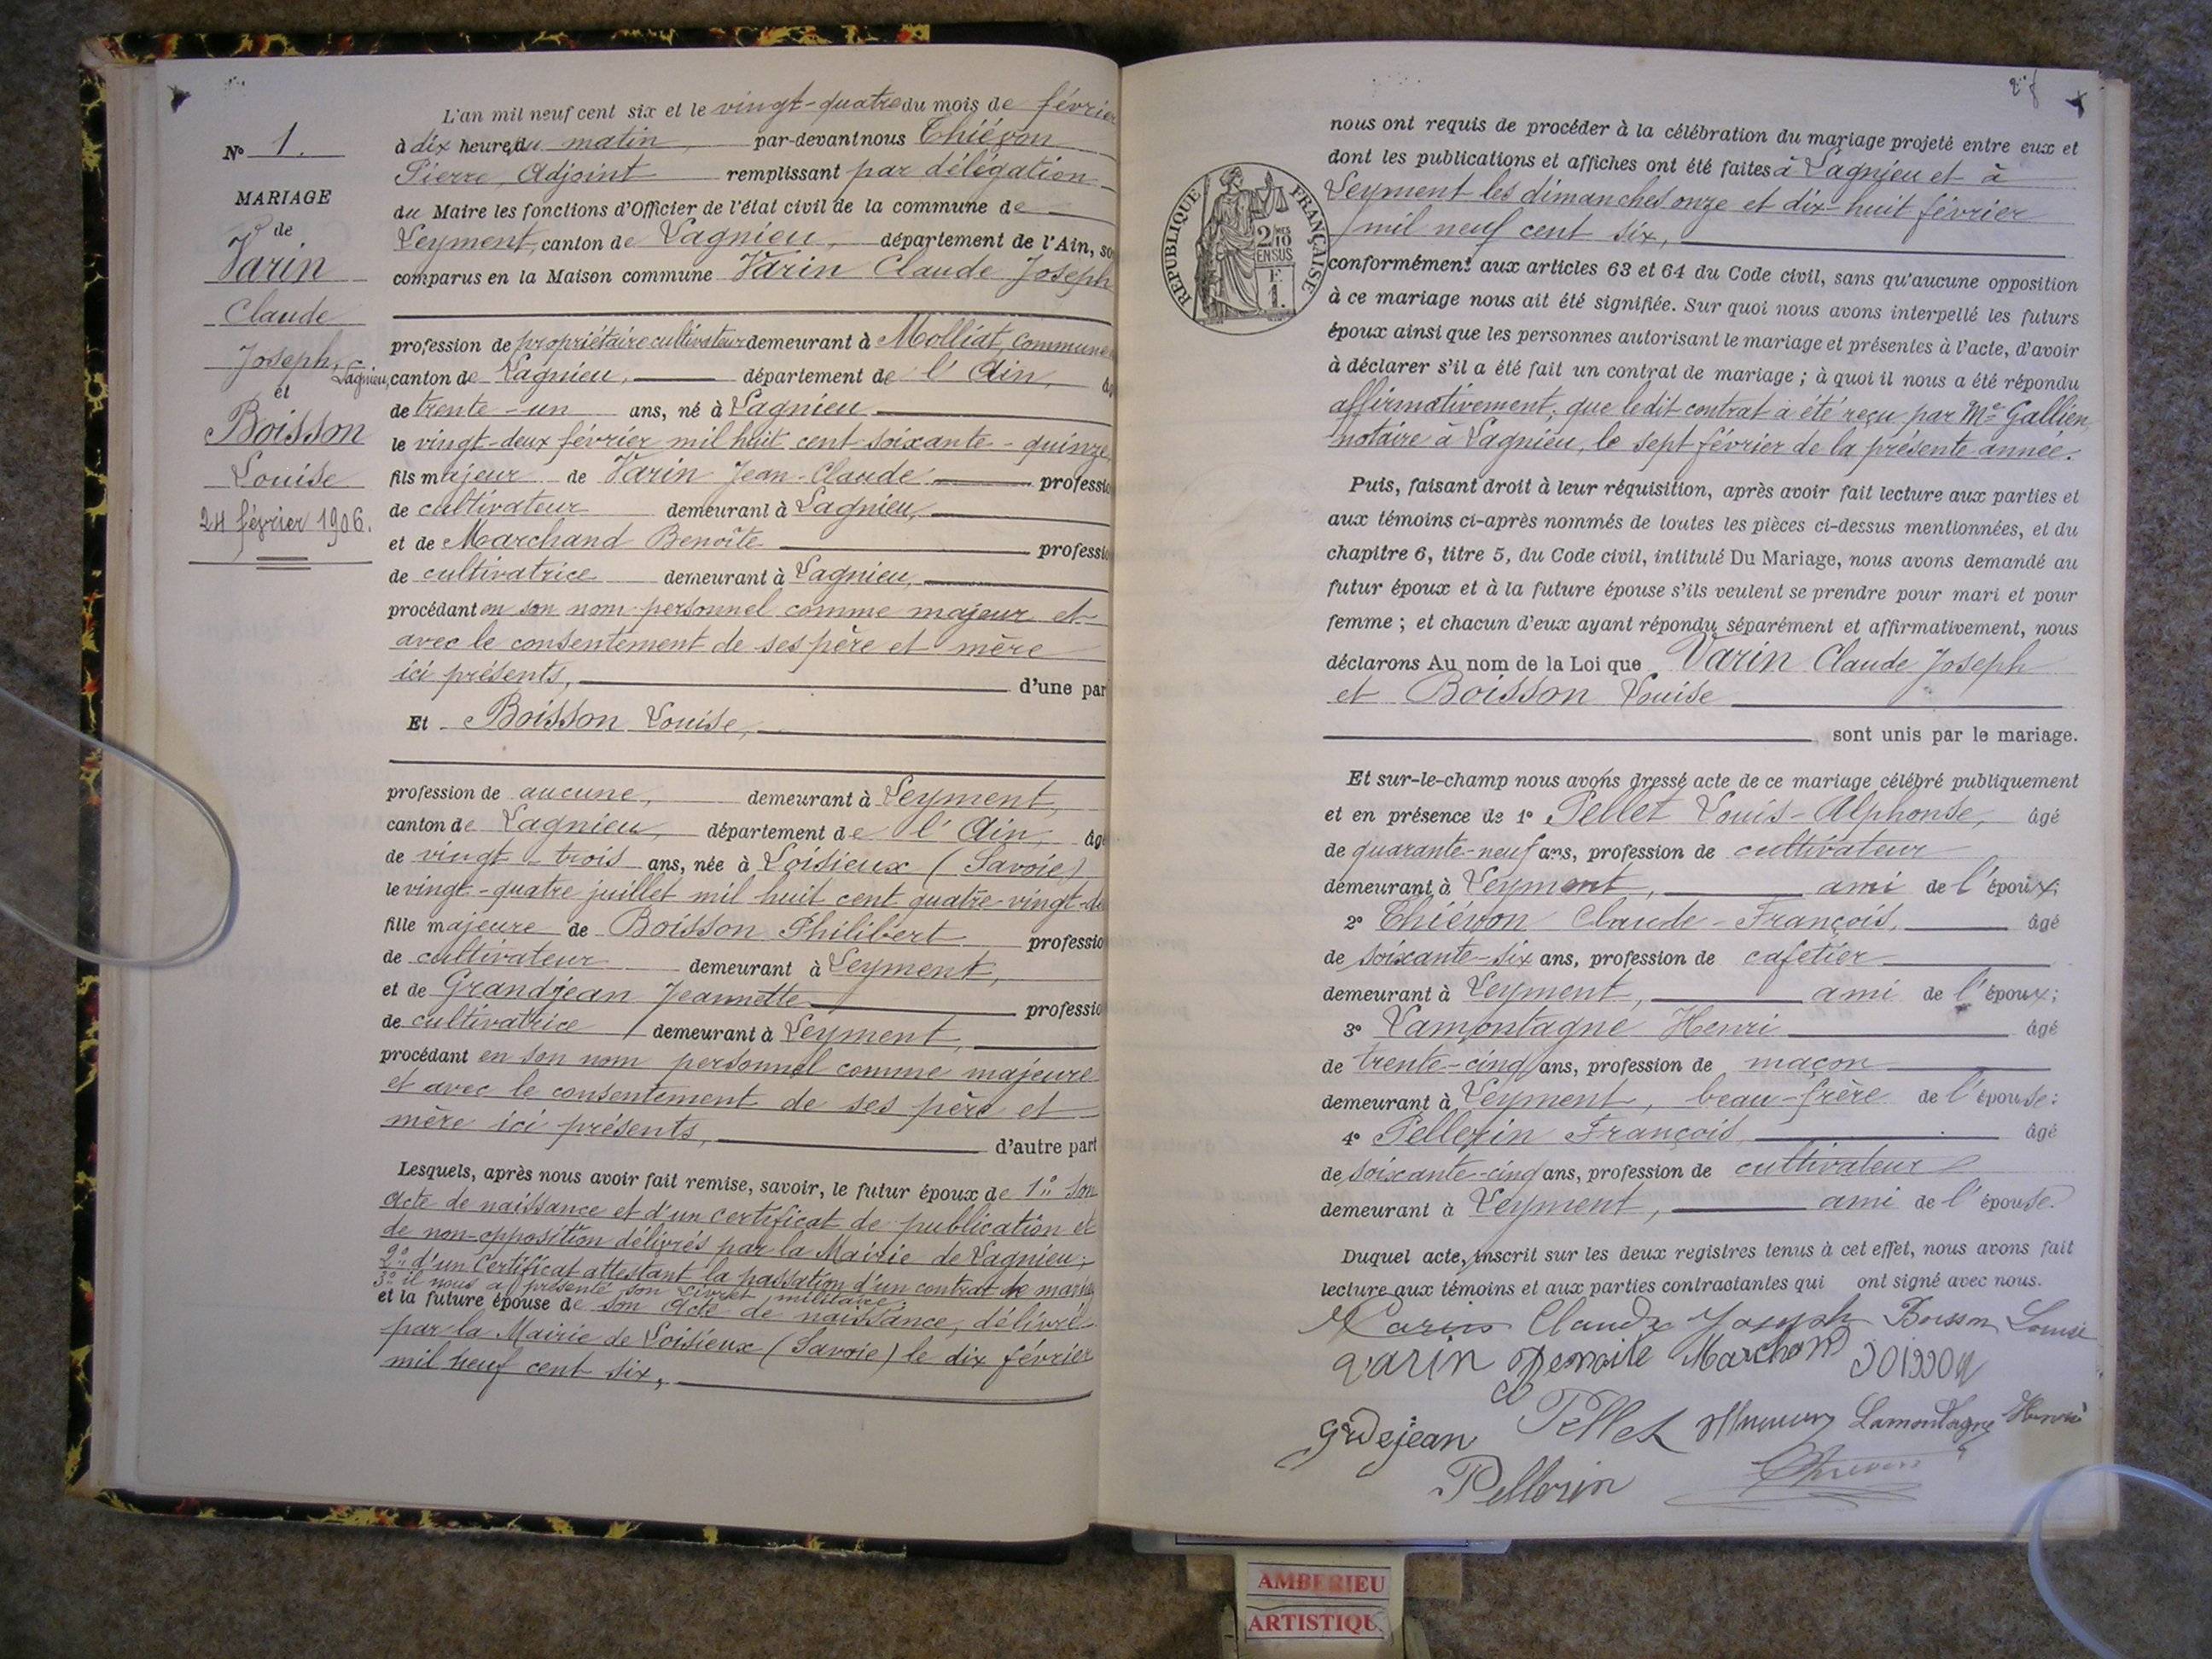 N° 1.
MARIAGE
de
Varin
Claude
Joseph,
et
Boisson
Louise
24 février 1906.
L'an mil neuf cent six et le vingt-quatre du mois de février
à dix heures du matin, par-devant nous Thiévon
Pierre, Adjoint remplissant par délégation
du Maire les fonctions d'Officier de l'état civil de la commune de
Leyment, canton de Lagnieu, département de l'Ain, so
comparus en la Maison commune Varin Claude Joseph
profession de propriétaire cultivateur demeurant à Molliat, commune
Lagnieu, canton de Lagnieu, département de l'Ain,
de trente-un ans, né à Lagnieu
le vingt-deux février mil huit cent soixante-quinze,
fils majeur de Varin Jean-Claude professio
de cultivateur demeurant à Lagnieu,
et de Marchand Benoîte professio
de cultivatrice demeurant à Lagnieu,
procédant en son nom personnel comme majeur et
avec le consentement de ses père et mère
ici présents, d'une par
Et Boisson Louise,
profession de aucune, demeurant à Leyment,
canton de Lagnieu, département de l'Ain, âg
de vingt-trois ans, née à Loisieux (Savoie)
le vingt-quatre juillet mil huit cent quatre-vingt-de
fille majeure de Boisson Philibert professio
de cultivateur demeurant à Leyment,
et de Grandjean Jeannette professio
de cultivatrice demeurant à Leyment,
procédant en son nom personnel comme majeure
et avec le consentement de ses père et
mère ici présents, d'autre part
Lesquels, après nous avoir fait remise, savoir, le futur époux de 1° son
acte de naissance et d'un certificat de publication et
de non-opposition délivrés par la Mairie de Lagnieu;
2° d'un Certificat attestant la passation d'un contrat de
3° il nous a présenté son livret militaire;
et la future épouse de son acte de naissance, délivré
par la Mairie de Loisieux (Savoie) le dix février
mil neuf cent six,
nous ont requis de procéder à la célébration du mariage projeté entre eux et
dont les publications et affiches ont été faites à Lagnieu et à
Leyment les dimanches onze et dix-huit février
mil neuf cent six,
RÉPUBLIQUE FRANÇAISE
2/10 EN SUS
F.
1.
conformément aux articles 63 et 64 du Code civil, sans qu'aucune opposition
à ce mariage nous ait été signifiée. Sur quoi nous avons interpellé les futurs
époux ainsi que les personnes autorisant le mariage et présentes à l'acte, d'avoir
à déclarer s'il a été fait un contrat de mariage ; à quoi il nous a été répondu
affirmativement; que ledit contrat a été reçu par Me Gallien
notaire à Lagnieu, le sept février de la présente année.
Puis, faisant droit à leur réquisition, après avoir fait lecture aux parties et
aux témoins ci-après nommés de toutes les pièces ci-dessus mentionnées, et du
chapitre 6, titre 5, du Code civil, intitulé Du Mariage, nous avons demandé au
futur époux et à la future épouse s'ils veulent se prendre pour mari et pour
femme ; et chacun d'eux ayant répondu séparément et affirmativement, nous
déclarons Au nom de la Loi que Varin Claude Joseph
et Boisson Louise
sont unis par le mariage.
Et sur-le-champ nous avons dressé acte de ce mariage célébré publiquement
et en présence de 1° Pellet Louis-Alphonse, âgé
de quarante-neuf ans, profession de cultivateur
demeurant à Leyment, ami de l'époux;
2° Thiévon Claude-François, âgé
de soixante-six ans, profession de cafetier
demeurant à Leyment, ami de l'époux;
3° Lamontagne Henri âgé
de trente-cinq ans, profession de maçon
demeurant à Leyment, beau-frère de l'épouse:
4° Pellerin François, âgé
de soixante-cinq ans, profession de cultivateur
demeurant à Leyment, ami de l'épouse.
Duquel acte, inscrit sur les deux registres tenus à cet effet, nous avons fait
lecture aux témoins et aux parties contractantes qui ont signé avec nous.
Varin Claude Joseph Boisson Louise
Varin Benoite Marchand Boisson
grdejean Pellet Lamontagne Henri
Pellerin Thievon
AMBERIEU
ARTISTIQU